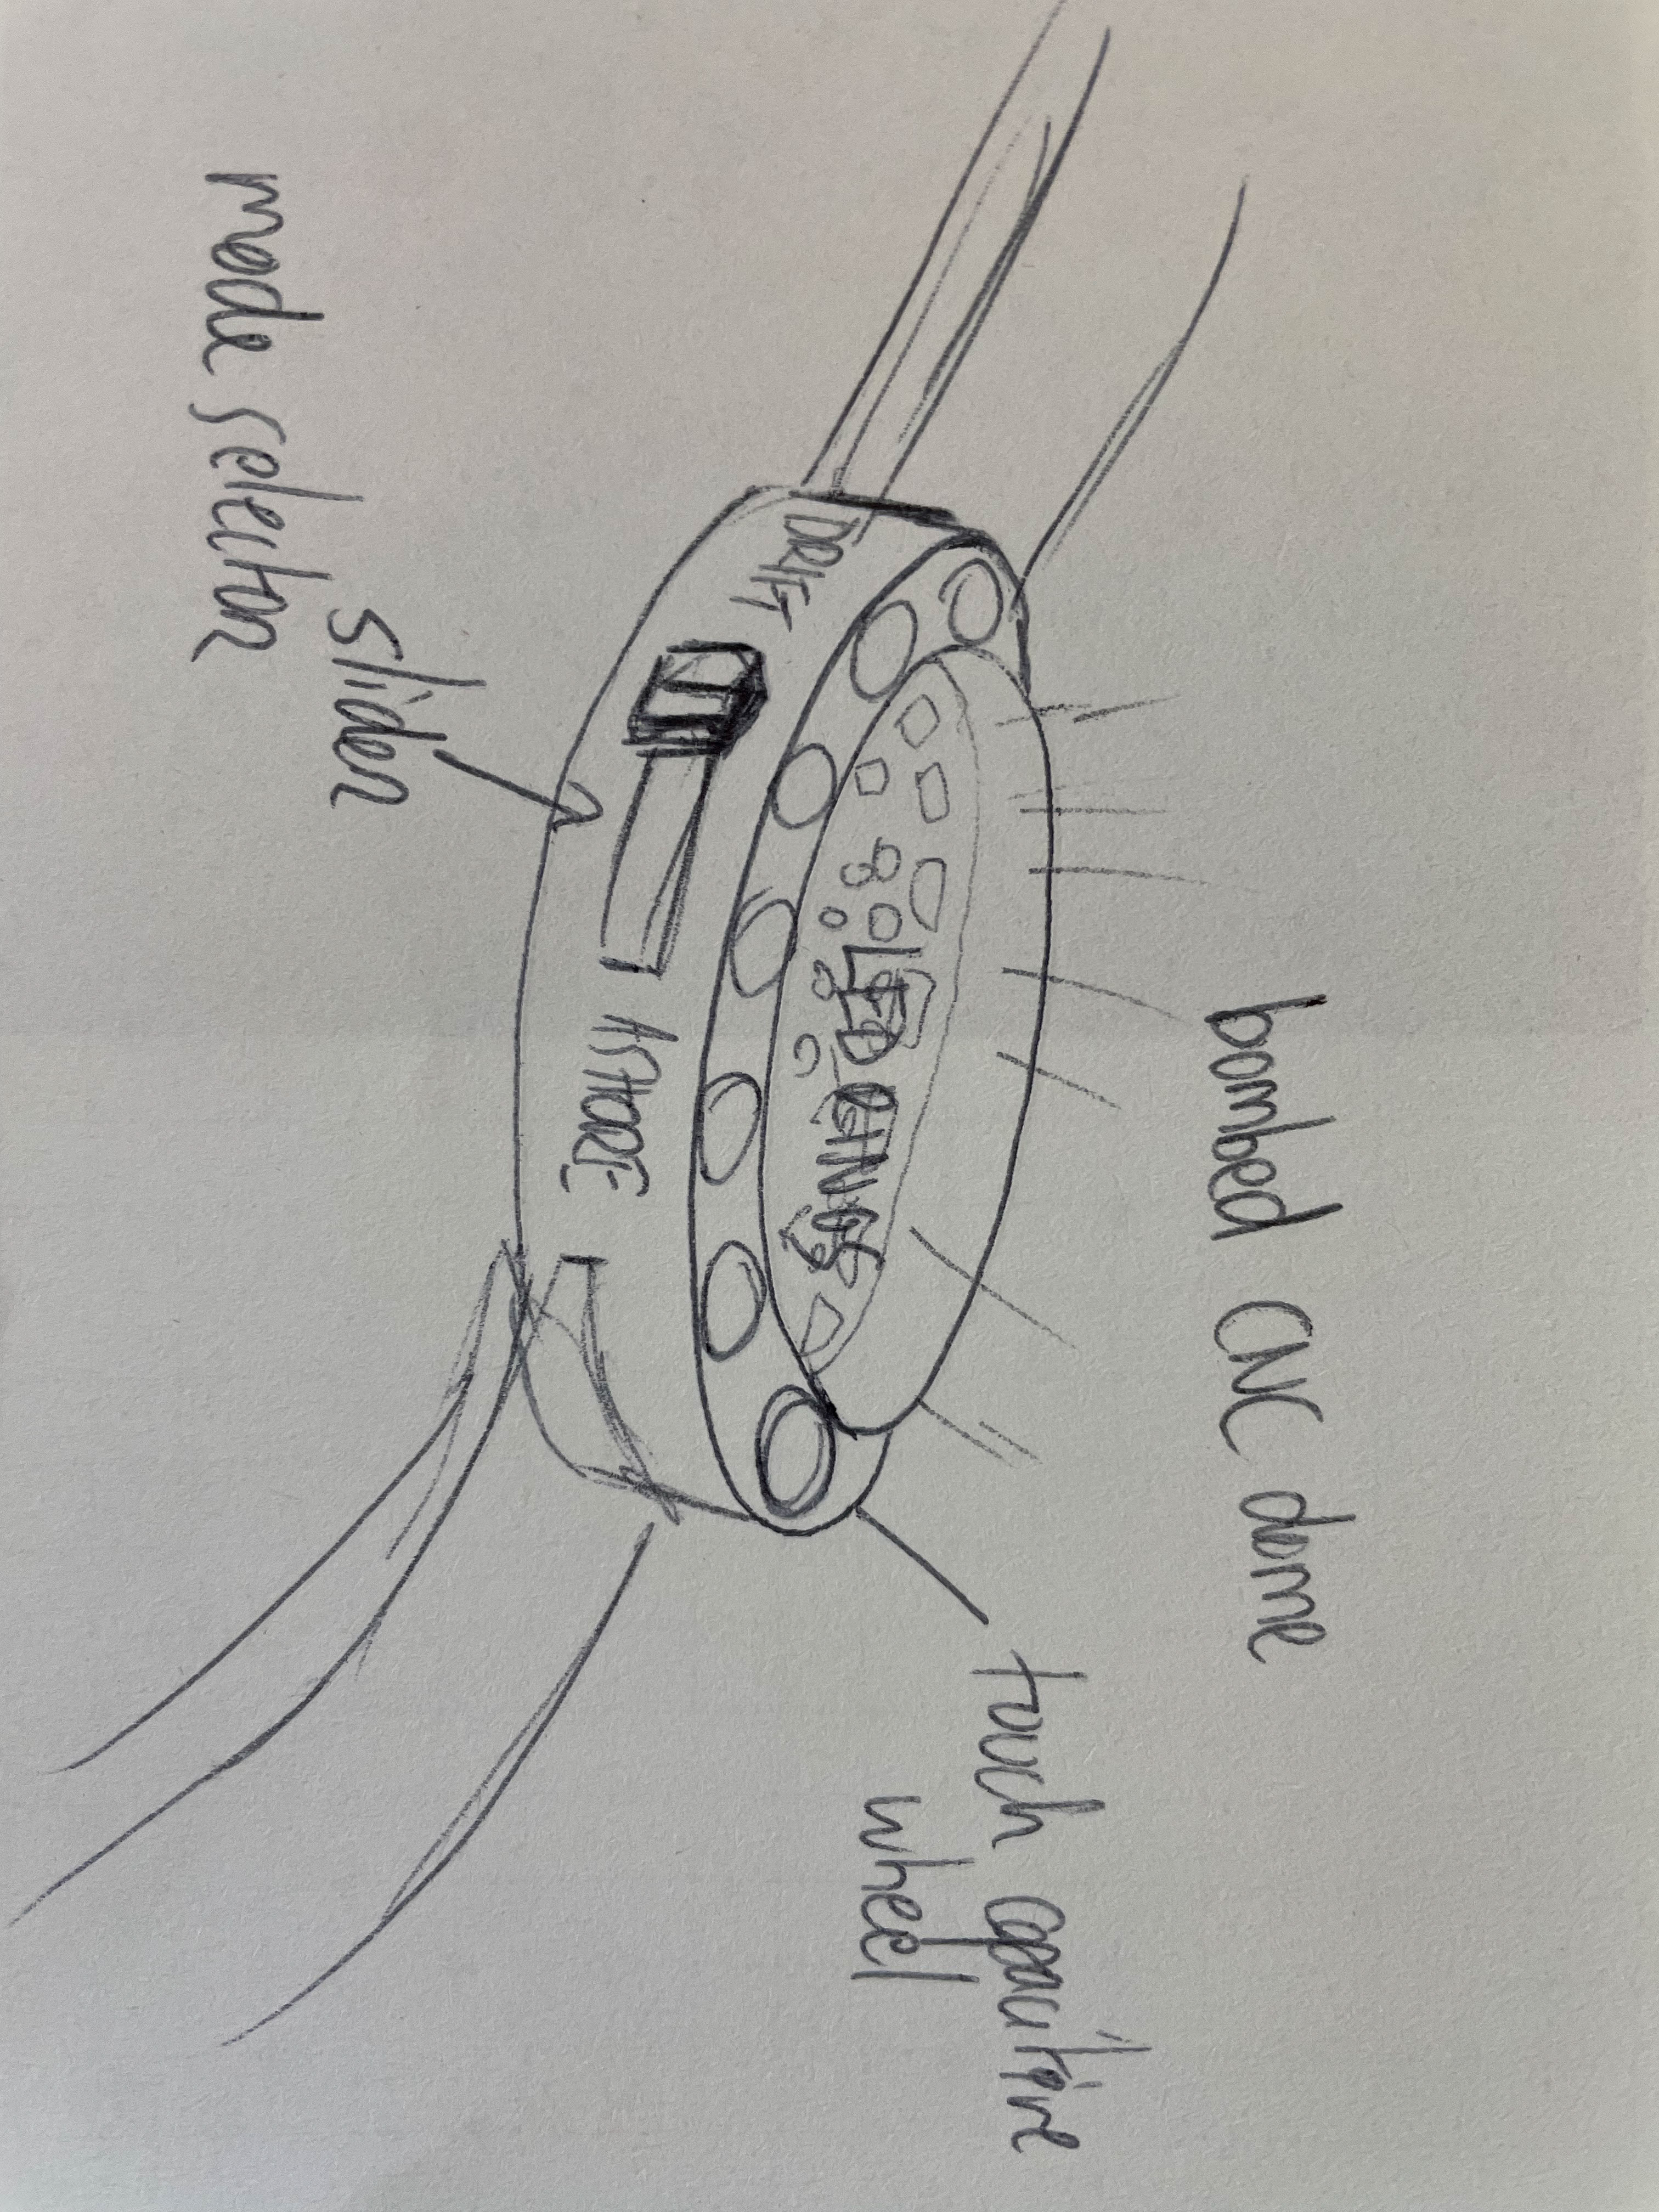 bombed CNC dome
touch capacitive
wheel
LED RINGS
DRIFT
ASHORE
slider
mode selector